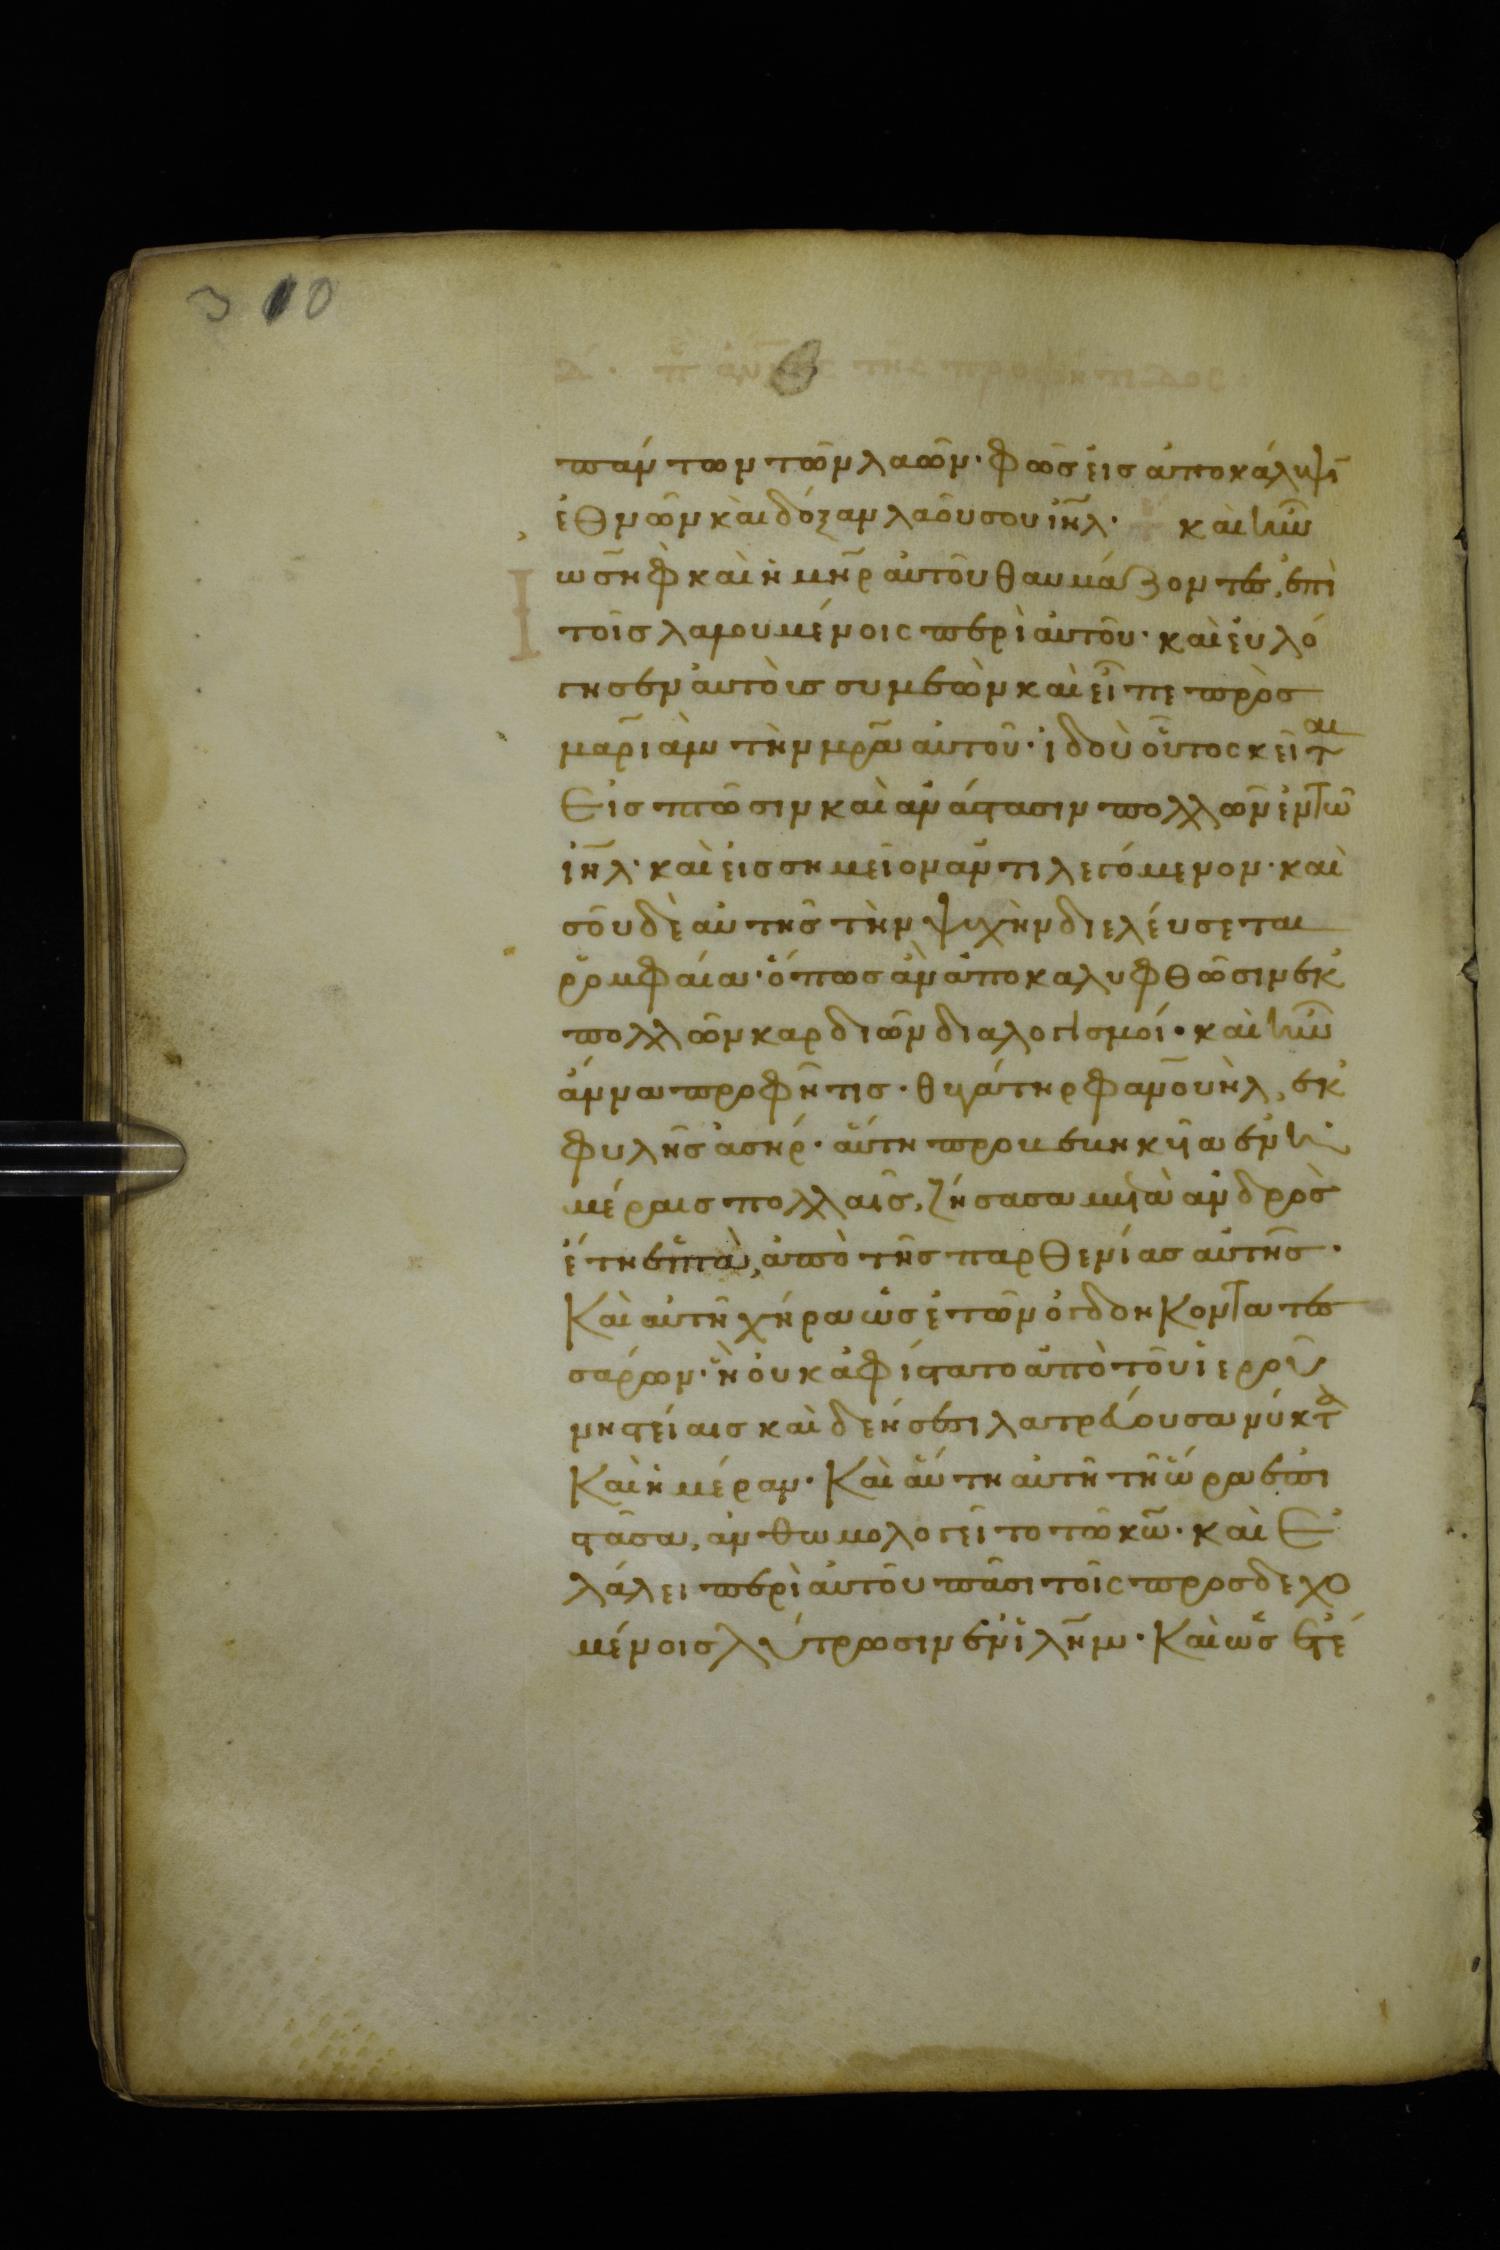 310
δ. π ἄννης τῆς προφήτιδος
πάντων τῶν λαῶν· φῶς εἰς ἀποκάλυψῖ
ἐθνῶν καὶ δόξαν λαοῦ σου ἰῆλ· καὶ ἦν
ἰωσὴφ καὶ ἡ μῆρ αὐτοῦ θαυμάζοντες, ἐπὶ
τοῖς λαλουμένοις περὶ αὐτοῦ· καὶ εὐλό
γησεν αὐτοὺς συμεὼν καὶ εἶπε πρὸς
μαριὰμ τὴν μρα αὐτοῦ· ἰδοὺ οὗτος κεῖται
εἰς πτῶσιν καὶ ἀνάστασιν πολλῶν ἐν τῶ
ἰῆλ· καὶ εἰς σημεῖον ἀντιλεγόμενον· καὶ
σοῦ δὲ αὐτῆς τὴν ψυχὴν διελεύσεται
ῥομφαία· ὅπως ἂν ἀποκαλυφθῶσιν ἐκ
πολλῶν καρδιῶν διαλογισμοί· καὶ ἦν
ἄννα προφῆτις· θυγάτηρ φανουὴλ, ἐκ
φυλῆς ἀσήρ· αὕτη προβεβηκυῖα ἐν ἡ
μέραις πολλαῖς, ζήσασα μετὰ ἀνδρὸς
ἔτη ἑπτὰ, ἀπὸ τῆς παρθενίας αὐτῆς·
Καὶ αὐτὴ χήρα ὡς ἐτῶν ὀγδοηκοντατεσ
σάρων· ἣ οὐκ ἀφίστατο ἀπὸ τοῦ ἱεροῦ
νηστείαις καὶ δεήσεσι λατρεύουσα νύκτα
Καὶ ἡμέραν· Καὶ αὕτη αὐτῆ τῆ ὥρα ἐπι
στᾶσα, ἀνθωμολογεῖτο τῶ κῶ· καὶ ἐ
λάλει περὶ αὐτοῦ πᾶσι τοῖς προσδεχο
μένοις λύτρωσιν ἐν ἱλῆμ· Καὶ ὡς ἐτέ